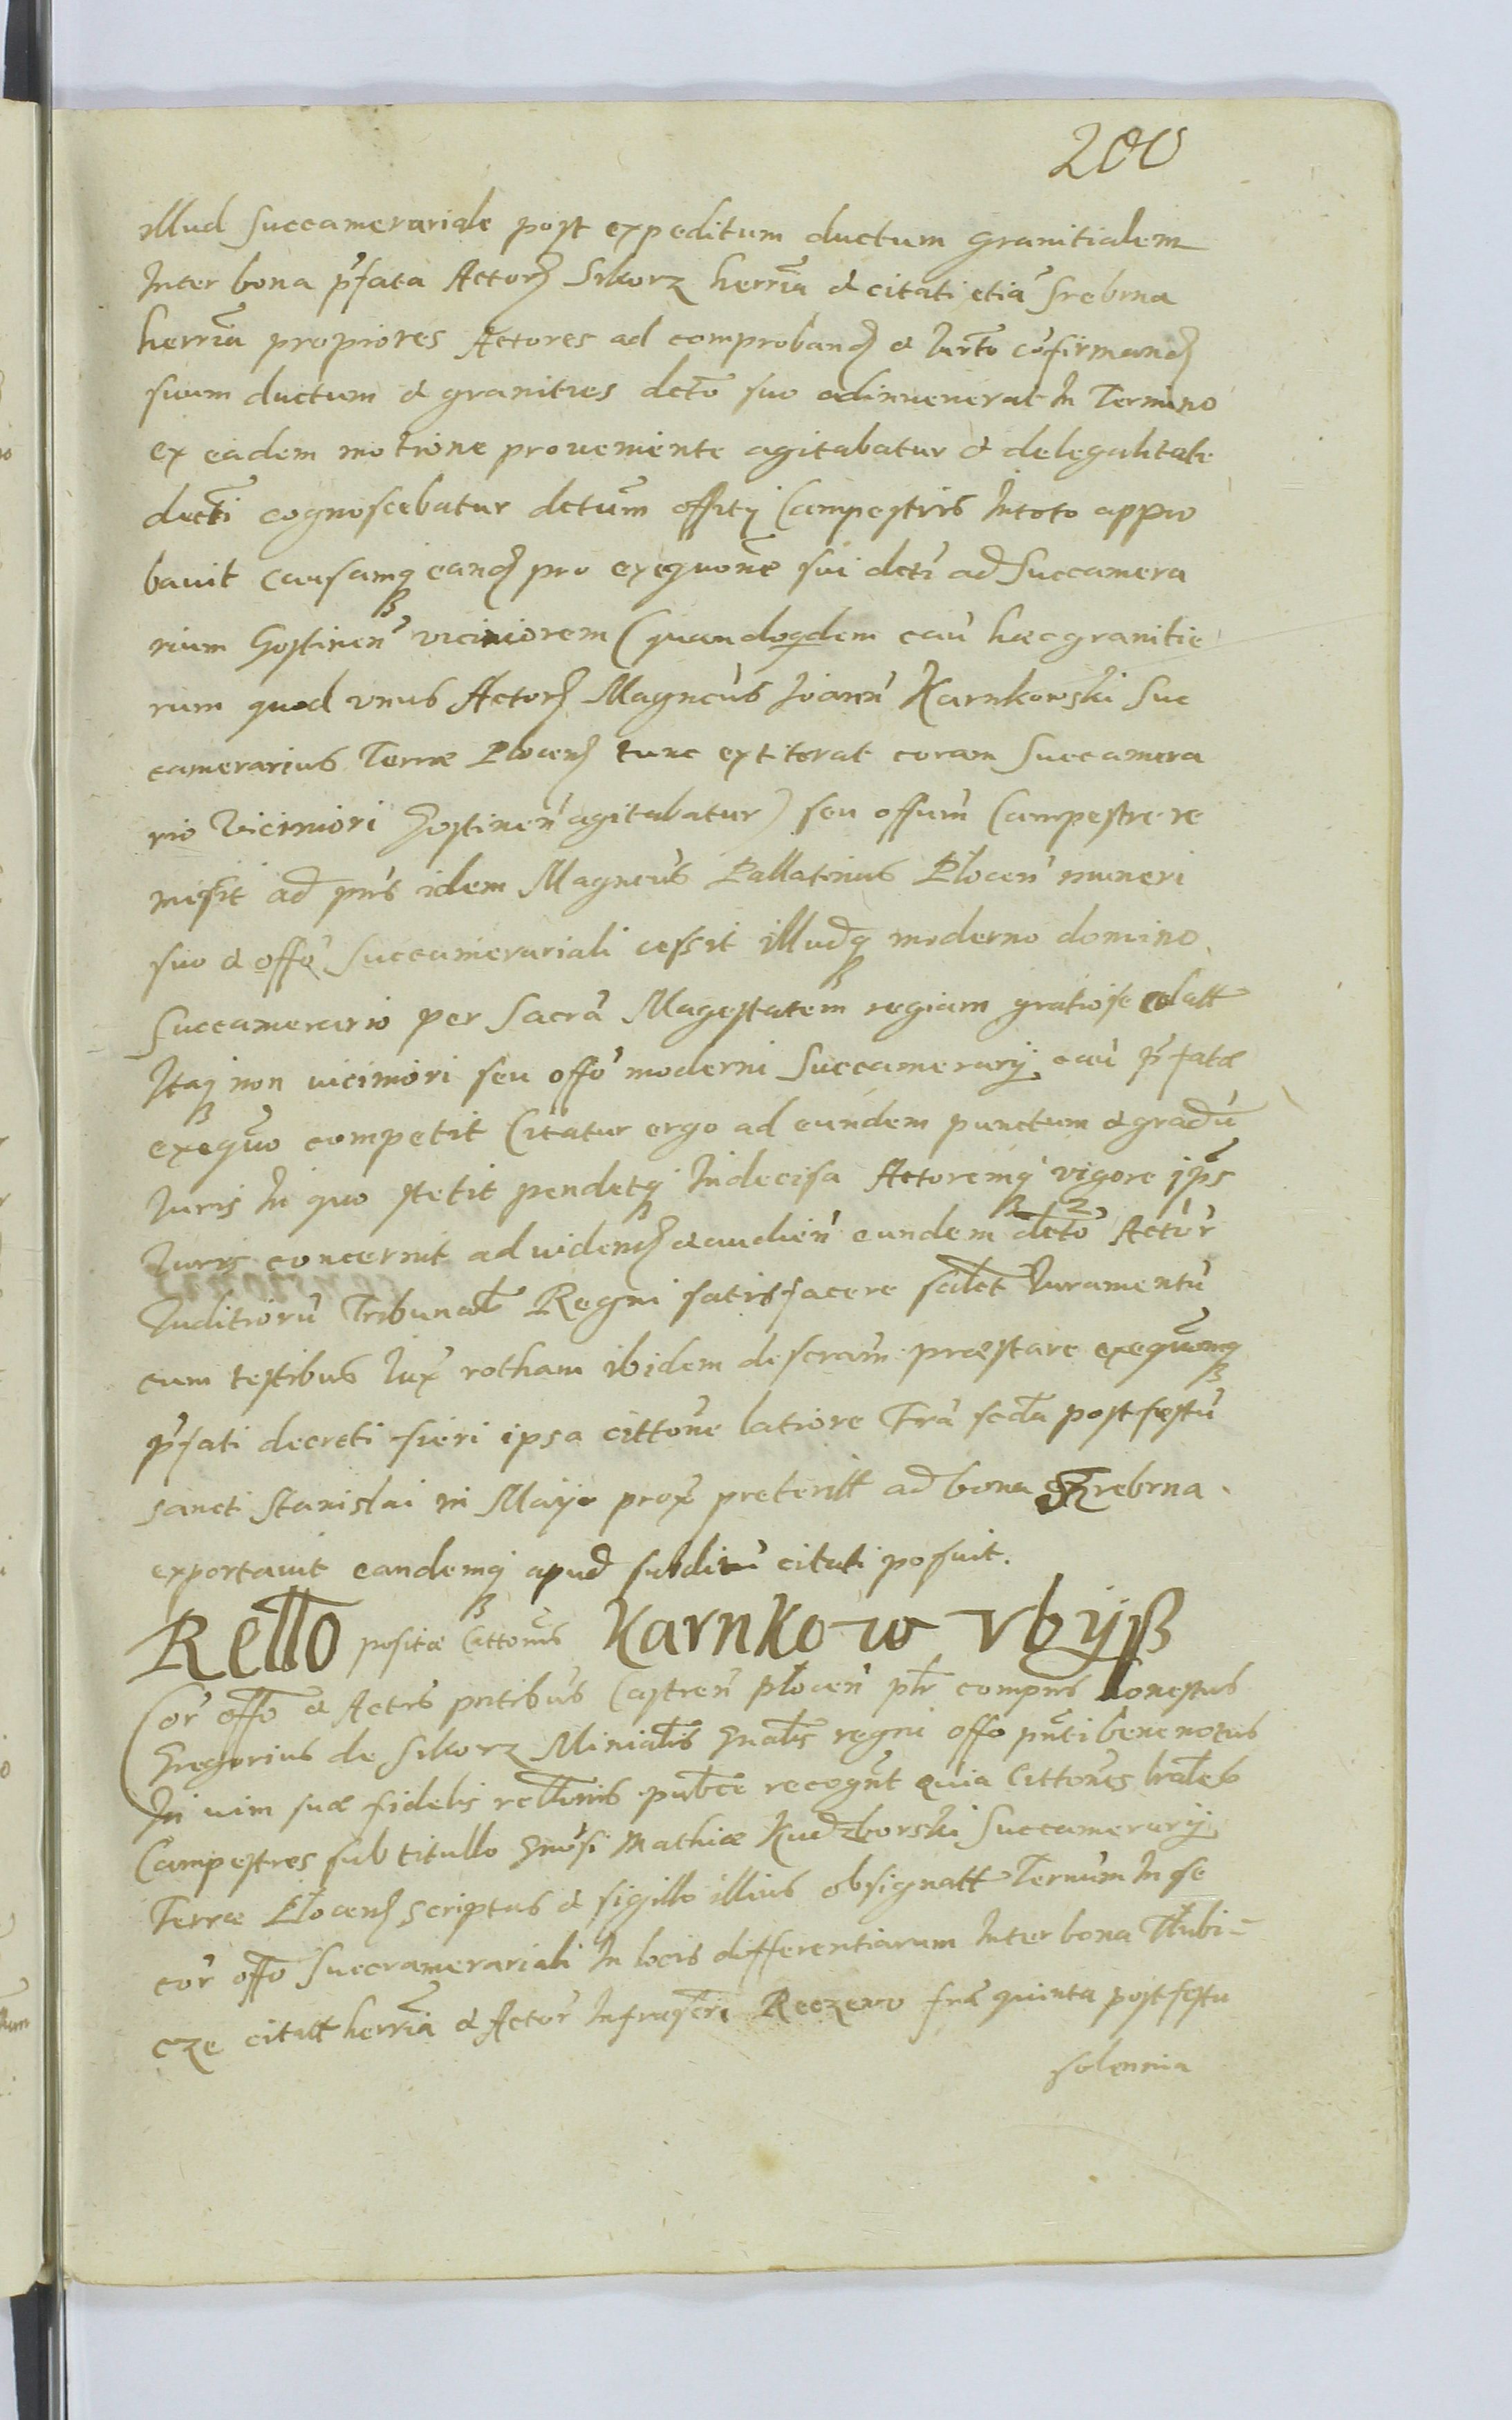 200
illud Succamerariale post expeditum ductum granitialem
Inter bona p̃fata Actorꝝ Sikorz herria͠ & citati etia͠ Srebrna
herria͠ propiores Actores ad comprobandꝭ & Iurto͠ co͠firmandꝭ
suum ductum & granities decto͠ suo adinuenerat In Termino
ex eadem motione proueniente agitabatur & delegalitate
decti͠ cognoscebatur dctum͠ offitÿ Campestris Intoto appro
bauit Causamqꝫ eandꝭ pro exequone͠ sui dcti͠ ad Succamera
rium Gostinen͠ viciniorem (quandoqdem cau͠ hac granitie
rum quod vnus Actorꝝ Magncu͠s Ioann͠ Karnkowski Suc
camerarius Terræ Plocenꝭ tunc extiterat coram Succamera
rio Viciniori Gostinen͠ agitabatur) seu offum͠ Campestre re
misit ad pn͠s idem Magncu͠s Pallatinus Plocen͠ muneri
suo & offo͠ Succamerariali cessit illudqꝫ moderno domino
Succamerario per Sacra͠ Magestatem regiam gratiose datt
Itaqꝫ non uiciniori seu offo͠ moderni Succamerarÿ cau͠ p̃fatæ
exequo͠ competit Citatur ergo ad eundem punctum & gradu͠
Iuris In quo stetit pendetqꝫ Indecisa Actoremqꝫ vigore ip͠s
Iuris concernit ad uidendꝭ & audien͠ eundem dcto͠ Actor͠
Iuditioru͠ Tribunal͠ Regni satisfacere salt͠ Iuramentu͠
cum testibus Iux͠ rotham ibidem descram͠ præstare exequomqꝫ͠
p̃fati decreti fieri ipsa cittone͠ latiore Fra͠ scda͠ post festu͠
sancti Stanislai in Mayo prox͠ preteritt ad bona Srebrna
exportauit eandemqꝫ apud subditu͠ citati posuit.
Rello͠ positæ Cittonis͠ Karnkow vbÿß
Cor͠ offo͠ & Actis pn͠tibus Castren͠ Plocen͠ pltr͠ compns͠ honestus
Gregorius de Sikorz Minialis͠ Gnalis͠ regni offo pn͠ti bene notus
In uim suæ fidelis rellonis͠ publce͠ recognt͠ quia Cittones͠ brales͠
Campestres sub titullo Gnosi͠ Mathiæ Kudzborski Succamerarÿ
Terræ Plocenꝭ scriptas & sigillo illius obsignatt Ternum͠ In se
cor͠ offo͠ Succramerariali In locis differentiarum Inter bona Tłubi-
cze citatt herria͠ & Actor͠ Infrascri͠ Reczewo fra͠ quinta post festu
solennia